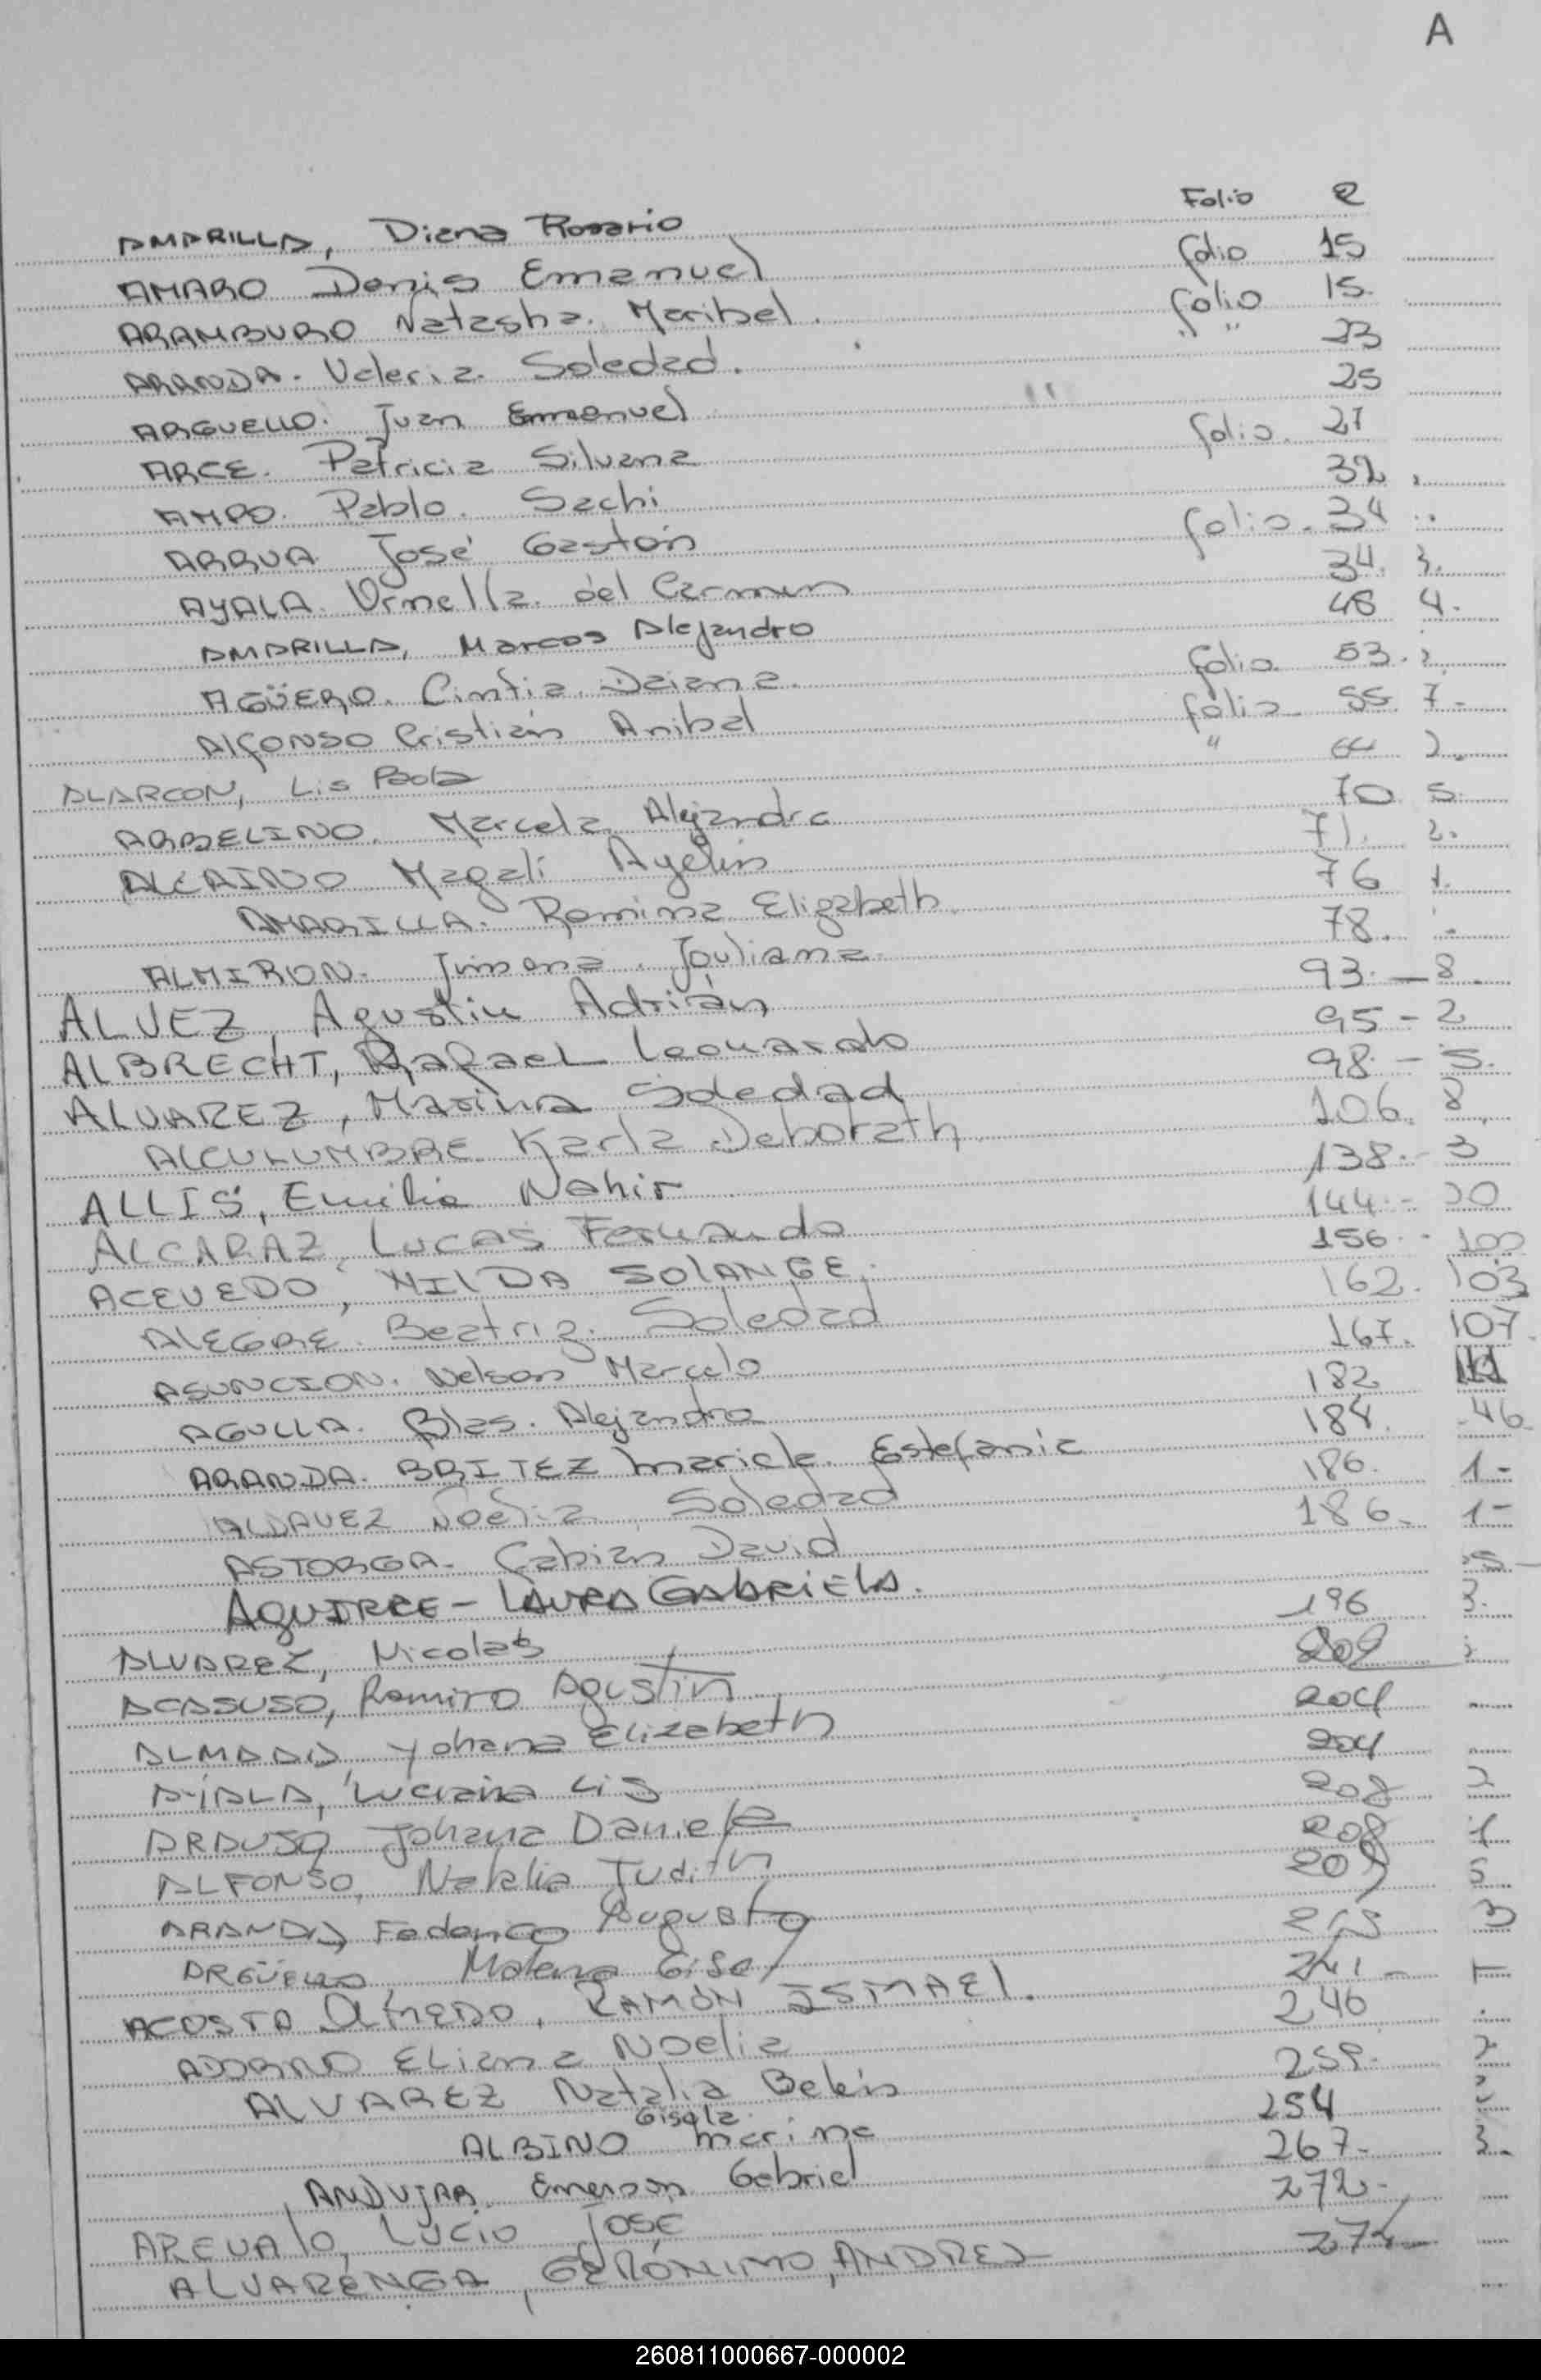 A
AMARILLA, Diana Rosario Folio 2
AMARO Denis Emanuel folio 15
ARAMBURO Natasha. Maribel. folio 15.
ARANDA. Valeria. Soledad. " " 23
ARGUELLO. Juan Emmanuel " 25
ARCE. Patricia Silvana folio. 27
AMPO. Pablo. Sachi 32
ARRUA José Gastón folio. 34
AYALA. Ornella. del Carmen 34. 3.
AMARILLA, Marcos Alejandro 48 4.
AGÜERO. Cintia. Daiana. folio 53.
Alfonso Cristián Anibal folio 55 7-
ALARCON, Lis Paola " 64 2.
ARBELINO. Marcela Alejandra 70 5.
ALCAINO Magali Ayelén 71. 2.
AMARILLA. Romina Elizabeth 76 1.
ALMIRON. Jimena. Jouliana. 78.
ALVEZ, Agustin Adrián 93.-8.
ALBRECHT, Rafael Leonardo 95-2
ALVAREZ, Marina Soledad 98.-5.
ALCULUMBRE Karla Deborath 106. 8
ALLIS, Emilia Nahir 138.-3
ALCARAZ, Lucas Fernando 144.- 20
ACEVEDO, NILDA SOLANGE. 156.- 100
ALEGRE. Beatriz. Soledad 162. 103
ASUNCION. Nelson Marcelo 167. 107.
AGULLA. Blas. Alejandro 182
ARANDA. BRITEZ Mariela. Estefania 184. 46.
ALDAVEZ Noelia Soledad 186. 1-
ASTORGA. Fabian David 186. 1-
AGUIRRE - LAURA GABRIELA.
ALVAREZ, Nicolas 196 3.
ACASUSO, Ramiro Agustin 202
ALMADA, Yohana Elizabeth 204
AYALA, Luciana Lis 204
ARAUJO, Johana Daniela 208 2
ALFONSO, Natalia Judith 208 1
ARANDA, Federico Augusto 209 5
ARGÜELLO, Malena Gisel 3
ACOSTA Alfredo, RAMÓN ISMAEL. 241-
ADORNO Eliana Noelia 246
ALVAREZ Natalia Belén 259. 2
Gisela
ALBINO Marina 254
ANDUJAR. Emerson Gabriel 267- 3.
AREVALO, Lucio José 272-
ALVARENGA, GERÓNIMO, ANDRES 274
260811000667-000002